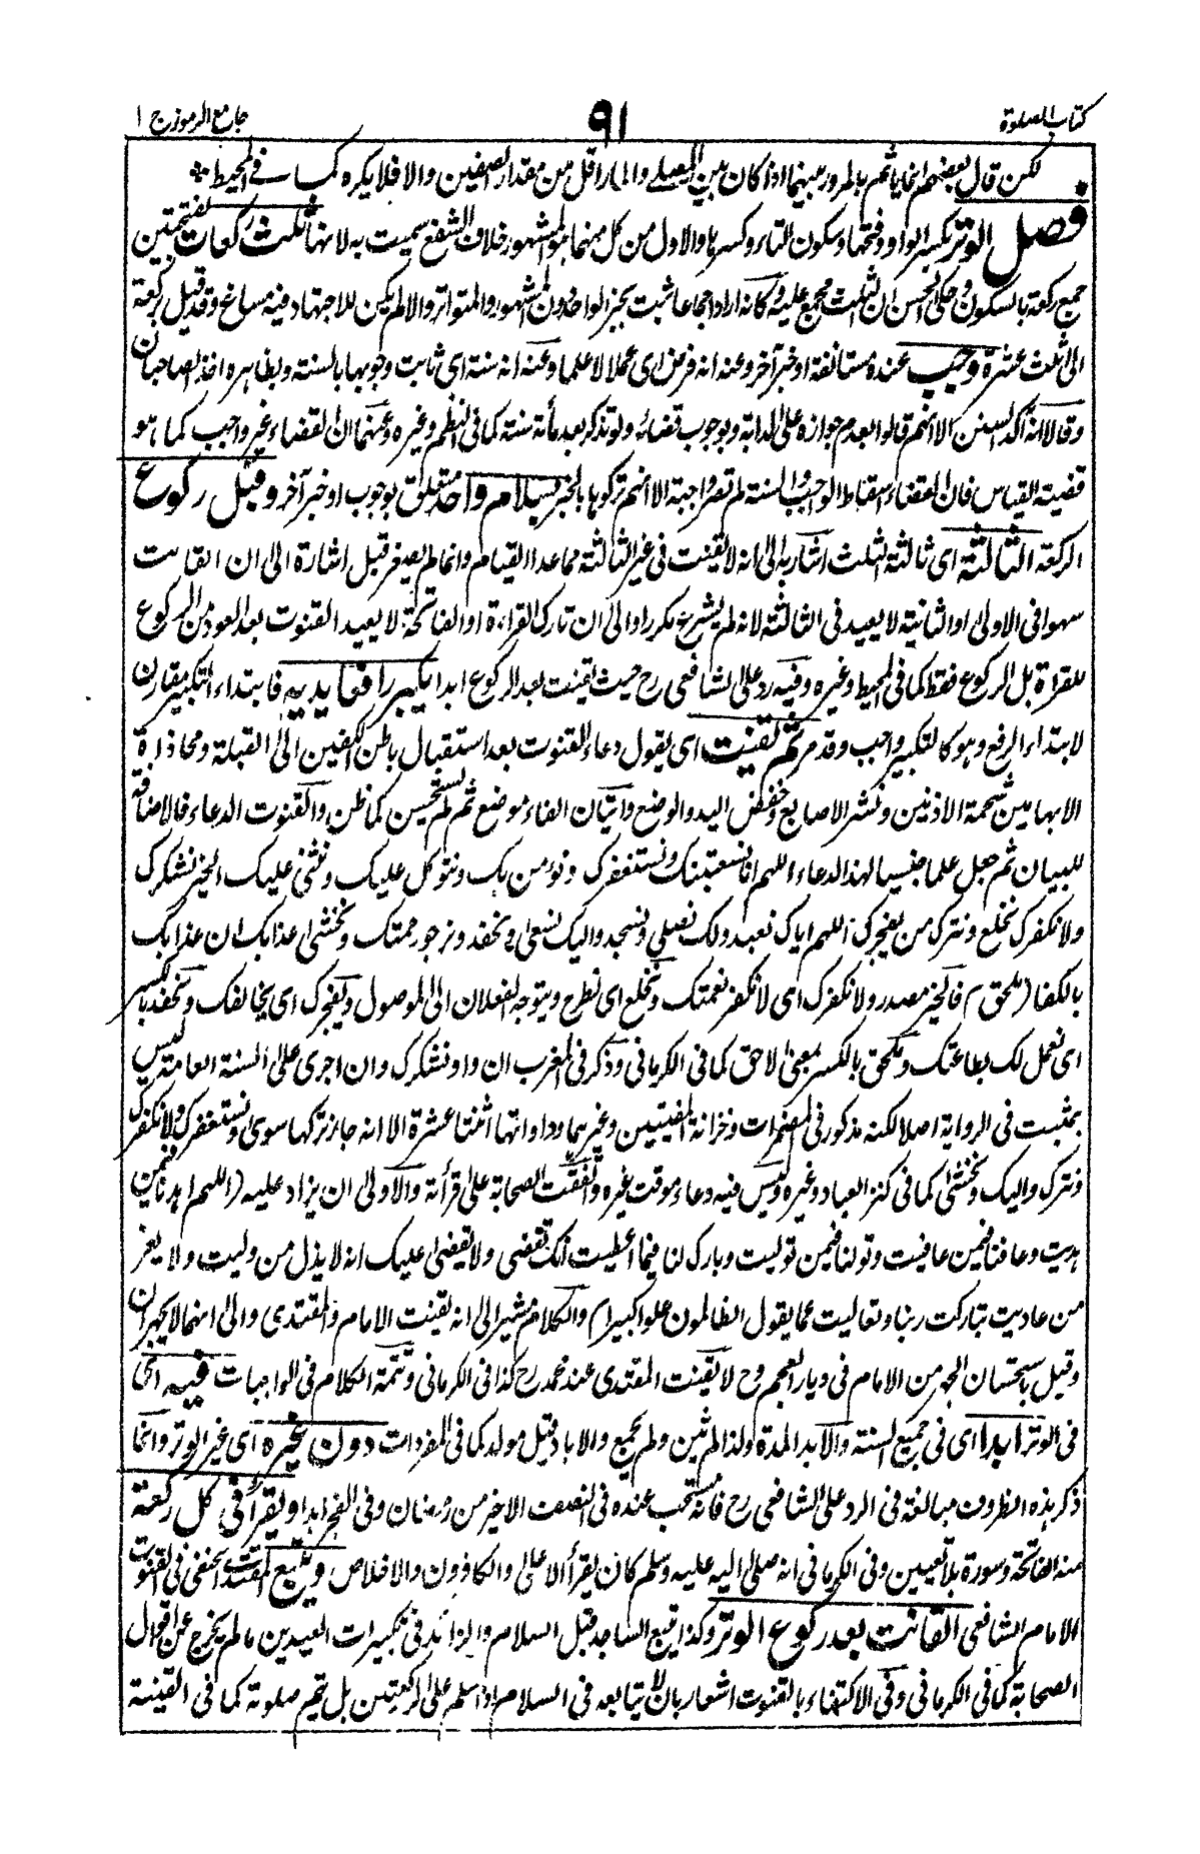 كتاب الصلوة
٩١
جامع الرموز ج ١
لكن قال بعضهم انما يأثم بالمرور بينهما اذا كان بين المصلى والمار اقل من مقدار الصفين والا فلا يكره كما فى المحيط
فصل الوتر بكسر الواو وفتحها وسكون التاء وكسرها والاول من كل منهما هو المشهور خلاف الشفع سميت به لانها ثلث ركعات بفتحتين
جمع ركعة بالسكون وحكى الحسن ان الثلث مجمع عليه وكانه اراد اجماعا ثبت بخبر الواحد دون المشهور والمتواتر والا لم يكن للاجتهاد فيه مساغ وقد قيل بركعة
الى ثلث عشرة وجب عنده مستانفة او خبر آخر وعنه انه فرض اى عملا لا علما وعنه انه سنة اى ثابت وجوبها بالسنة وبظاهره اخذ الصاحبان
وقالا انه اكد السنن الا انهم قالوا بعدم جوازه على الدابة وبوجوب قضائه ولو تذكر بعد مأتة سنة كما فى النظم وغيره وعنهما ان القضاء غير واجب كما هو
قضية القياس فان القضاء اسقاط الواجب والسنة لم تصر واجبة الا انهم تركوها بالخبر بسلام واحد متعلق بوجوب او خبر آخر وقبل ركوع
الركعة الثالثة اى ثالثة الثلث اشار به الى انه لا يقنت فى غير الثالثة مما عدا القيام وانما لم يصغر قبل اشارة الى ان القانت
سهوا فى الاولى او الثانية لا يعيد فى الثالثة لانه لم يشرع مكررا والى ان تارك القراءة او الفاتحة لا يعيد القنوت بعد العود من الركوع
للقراة بل الركوع فقط كما فى المحيط وغيره وفيه رد على الشافعى رح حيث يقنت بعد الركوع ابدا يكبر رافعا يديه فابتداء التكبير مقارن
لابتداء الرفع وهو كالتكبير واجب وقد مر ثم يقنت اى يقول دعاء القنوت بعد استقبال باطن الكفين الى القبلة ومحاذاة
الابهامين شحمة الاذنين ونشر الاصابع وخفض اليد والوضع واتيان الفاء موضع ثم لم يستحسن كما ظن والقنوت الدعاء فالاضافة
للبيان ثم جعل علما جنسيا لهذا الدعاء اللهم انا نستعينك ونستغفرك ونؤمن بك ونتوكل عليك ونثنى عليك الخير نشكرك
ولا نكفرك نخلع ونترك من يفجرك اللهم اياك نعبد ولك نصلى ونسجد واليك نسعى ونحفد ونرجو رحمتك ونخشى عذابك ان عذابك
بالكفار ملحق) فالخير مصدر ولا نكفرك اى لا نكفر نعمتك ونخلع اى نطرح ويتوجه الفعلان الى الموصول ويفجرك اى يخالفك ونحفد بالكسر
اى نعمل لك بطاعتك وملحق بالكسر بمعنى لاحق كما فى الكرمانى وذكر فى المغرب ان واو ونشكرك وان اجرى على السنة العامة ليس
بمثبت فى الرواية اصلا لكنه مذكور فى المضمرات وخزانة المفتيين وغيرهما وداواتها اثنتا عشرة الا انه جاز تركها سوى ونستغفرك ولا نكفرك
ونترك واليك ونخشى كما فى كنز العباد وغيره وليس فيه دعاء موقت غيره واتفقت الصحابة على قرأته والاولى ان يزاد عليه (اللهم اهدنا فيمن
هديت وعافنا فيمن عافيت وتولنا فيمن توليت وبارك لنا فيما اعطيت انك تقضى ولا يقضى عليك انه لا يذل من وليت ولا يعز
من عاديت تباركت ربنا وتعاليت عما يقول الظالمون علوا كبيرا) والكلام مشير الى انه يقنت الامام والمقتدى والى انهما لا يجهران
وقيل باستحسان الجهر من الامام فى ديار العجم وح لا يقنت المقتدى عند محمد رح كذا فى الكرمانى وتتمة الكلام فى الواجبات فيه اى
فى الوتر ابدا اى فى جميع السنة والابد المدة ولذا لم يثن ولم يجمع والاباد قيل مولد كما فى المفردات دون غيره اى غير الوتر وانما
ذكر هذه الظروف مبالغة فى الرد على الشافعى رح فانه مستحب عنده فى النصف الاخير من رمضان وفى الفجر ابدا ويقرأ فى كل ركعة
منه الفاتحة وسورة بلا تعيين وفى الكرمانى انه صلى اليه عليه وسلم كان يقرأ الاعلى والكافرون والاخلاص ويتبع المقتدى الحنفى فى القنوت
الامام الشافعى القانت بعد ركوع الوتر وكذا يتبع الساجد قبل السلام والزائد فى تكبيرات العيدين ما لم يخرج عن اقوال
الصحابة كما فى الكرمانى وفى الاكتفاء بالقنوت اشعار بان لا يتابعه فى السلام اذا سلم على الركعتين بل يتم صلوته كما فى القنية